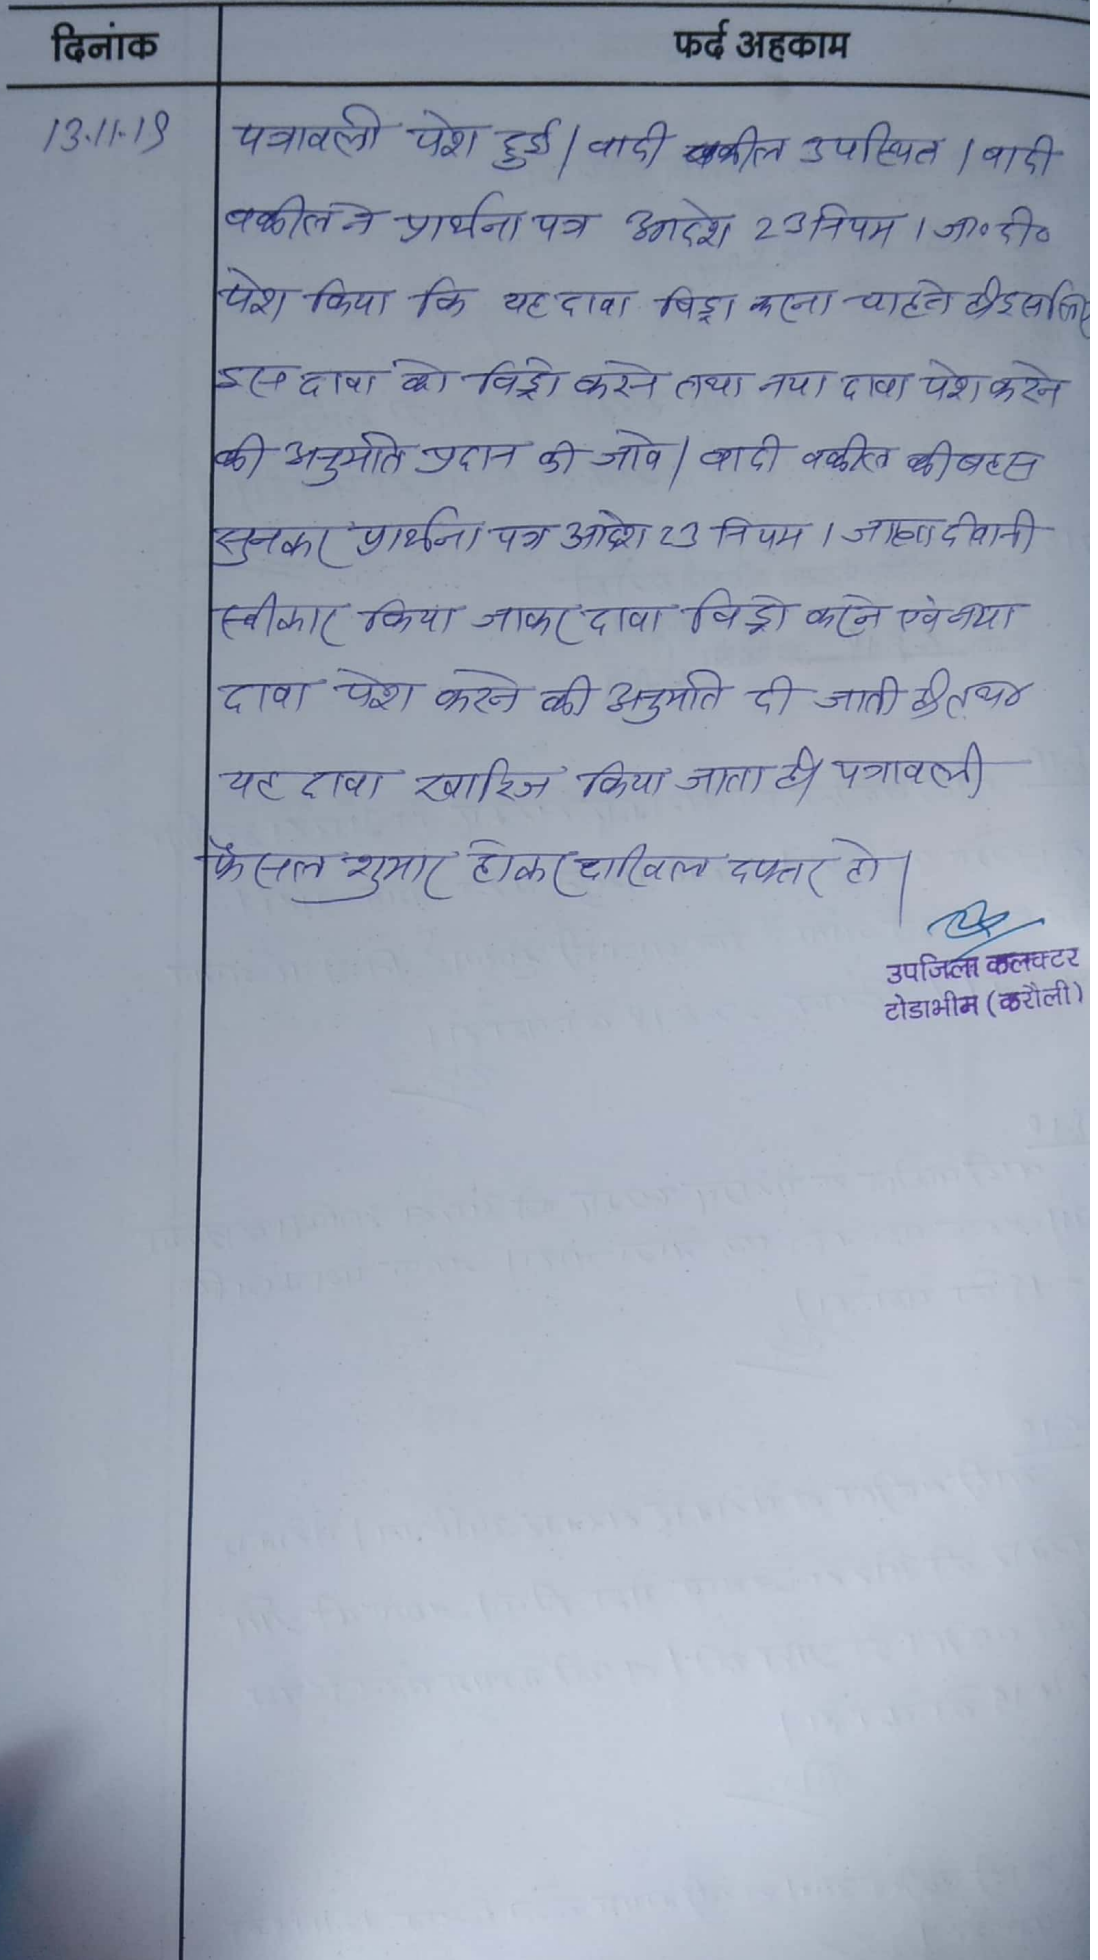 दिनांक
फर्द अहकाम
13.11.19
पत्रावली पेश हुई। वादी वकील उपस्थित। वादी
वकील ने प्रार्थना पत्र आदेश 23 नियम 1 जा०दी०
पेश किया कि यह दावा विड्रा करना चाहते है। इसलिए
इस दावा को विड्रो करने तथा नया दावा पेश करने
की अनुमति प्रदान की जावे। वादी वकील की बहस
सुनकर प्रार्थना पत्र आदेश 23 नियम 1 जाब्ता दीवानी
स्वीकार किया जाकर दावा विड्रो करने एवं नया
दावा पेश करने की अनुमति दी जाती है। तथा
यह दावा खारिज किया जाता है। पत्रावली
फैसल शुमार होकर दाखिल दफ्तर हो।
उपजिला कलक्टर
टोडाभीम (करौली)